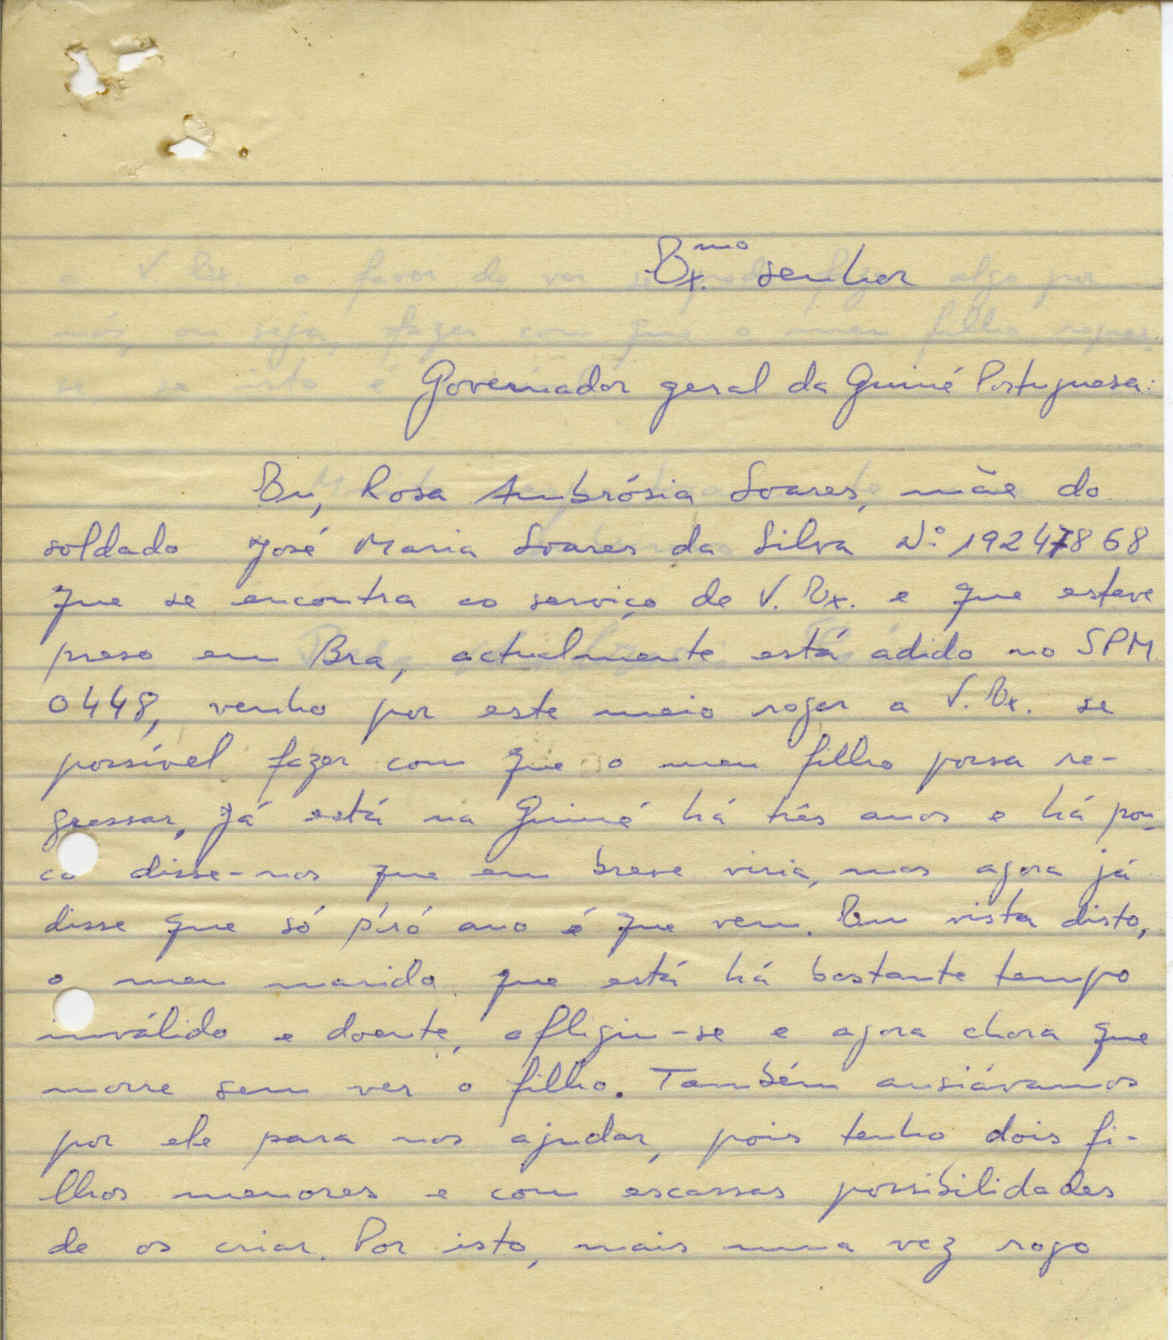 Ex.mo senhor
Governador geral da Guiné Portuguesa:
Eu, Rosa Ambrósia Soares, mãe do
soldado José Maria Soares da Silva Nº 19247868
que se encontra ao serviço de V. Ex. e que esteve
preso em Bra, actualmente está adido no SPM
0448, venho por este meio rogar a V. Ex. se
possível fazer com que o meu filho possa re-
gressar, já está na Guiné há três anos e há pou-
co disse-nos que em breve viria, mas agora já
disse que só p'ró ano é que vem. Em vista disto,
o meu marido que está há bastante tempo
inválido e doente, afligiu-se e agora chora que
morre sem ver o filho. Também ansiávamos
por ele para nos ajudar, pois tenho dois fi-
lhos menores e com escassas possibilidades
de os criar. Por isto, mais uma vez rogo